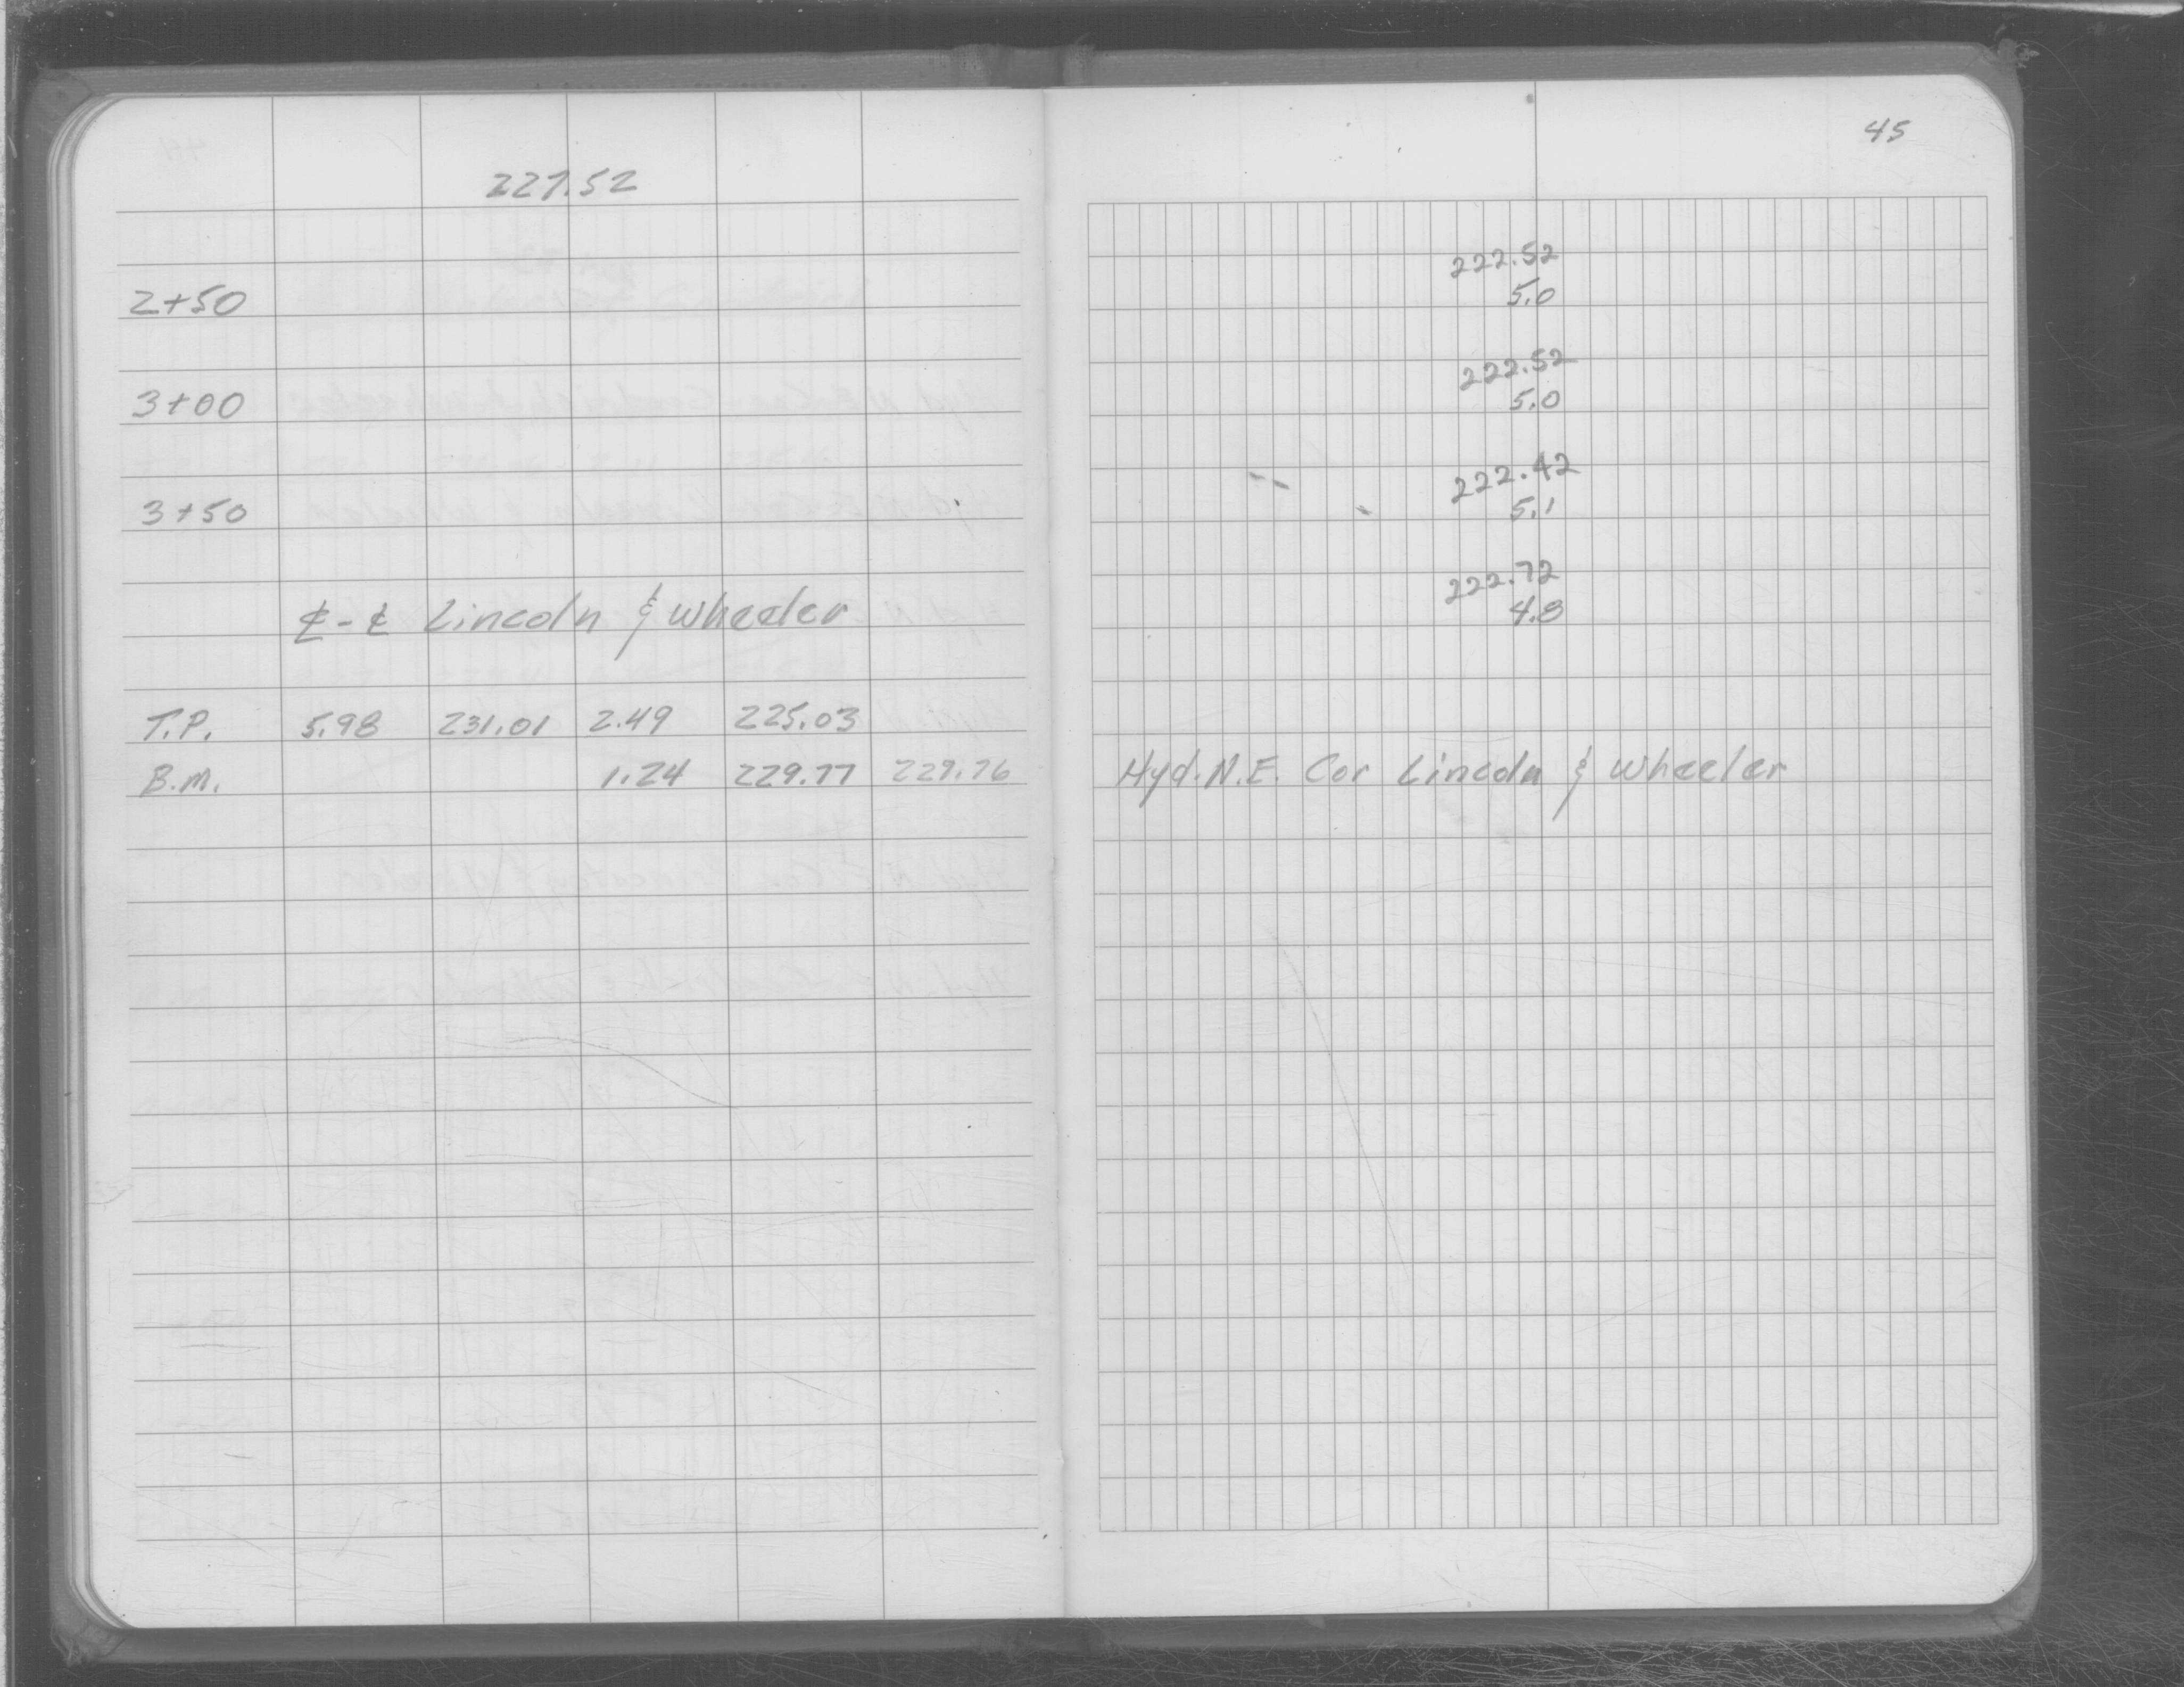 45
227.52
222.52
2+50 5.0
222.52
3+00 5.0
222.42
3+50 5.1
222.72
℄-℄ Lincoln & Wheeler 4.8
T.P. 5.98 231.01 2.49 225.03
B.M. 1.24 229.77 229.76 Hyd. N.E. Cor Lincoln & Wheeler